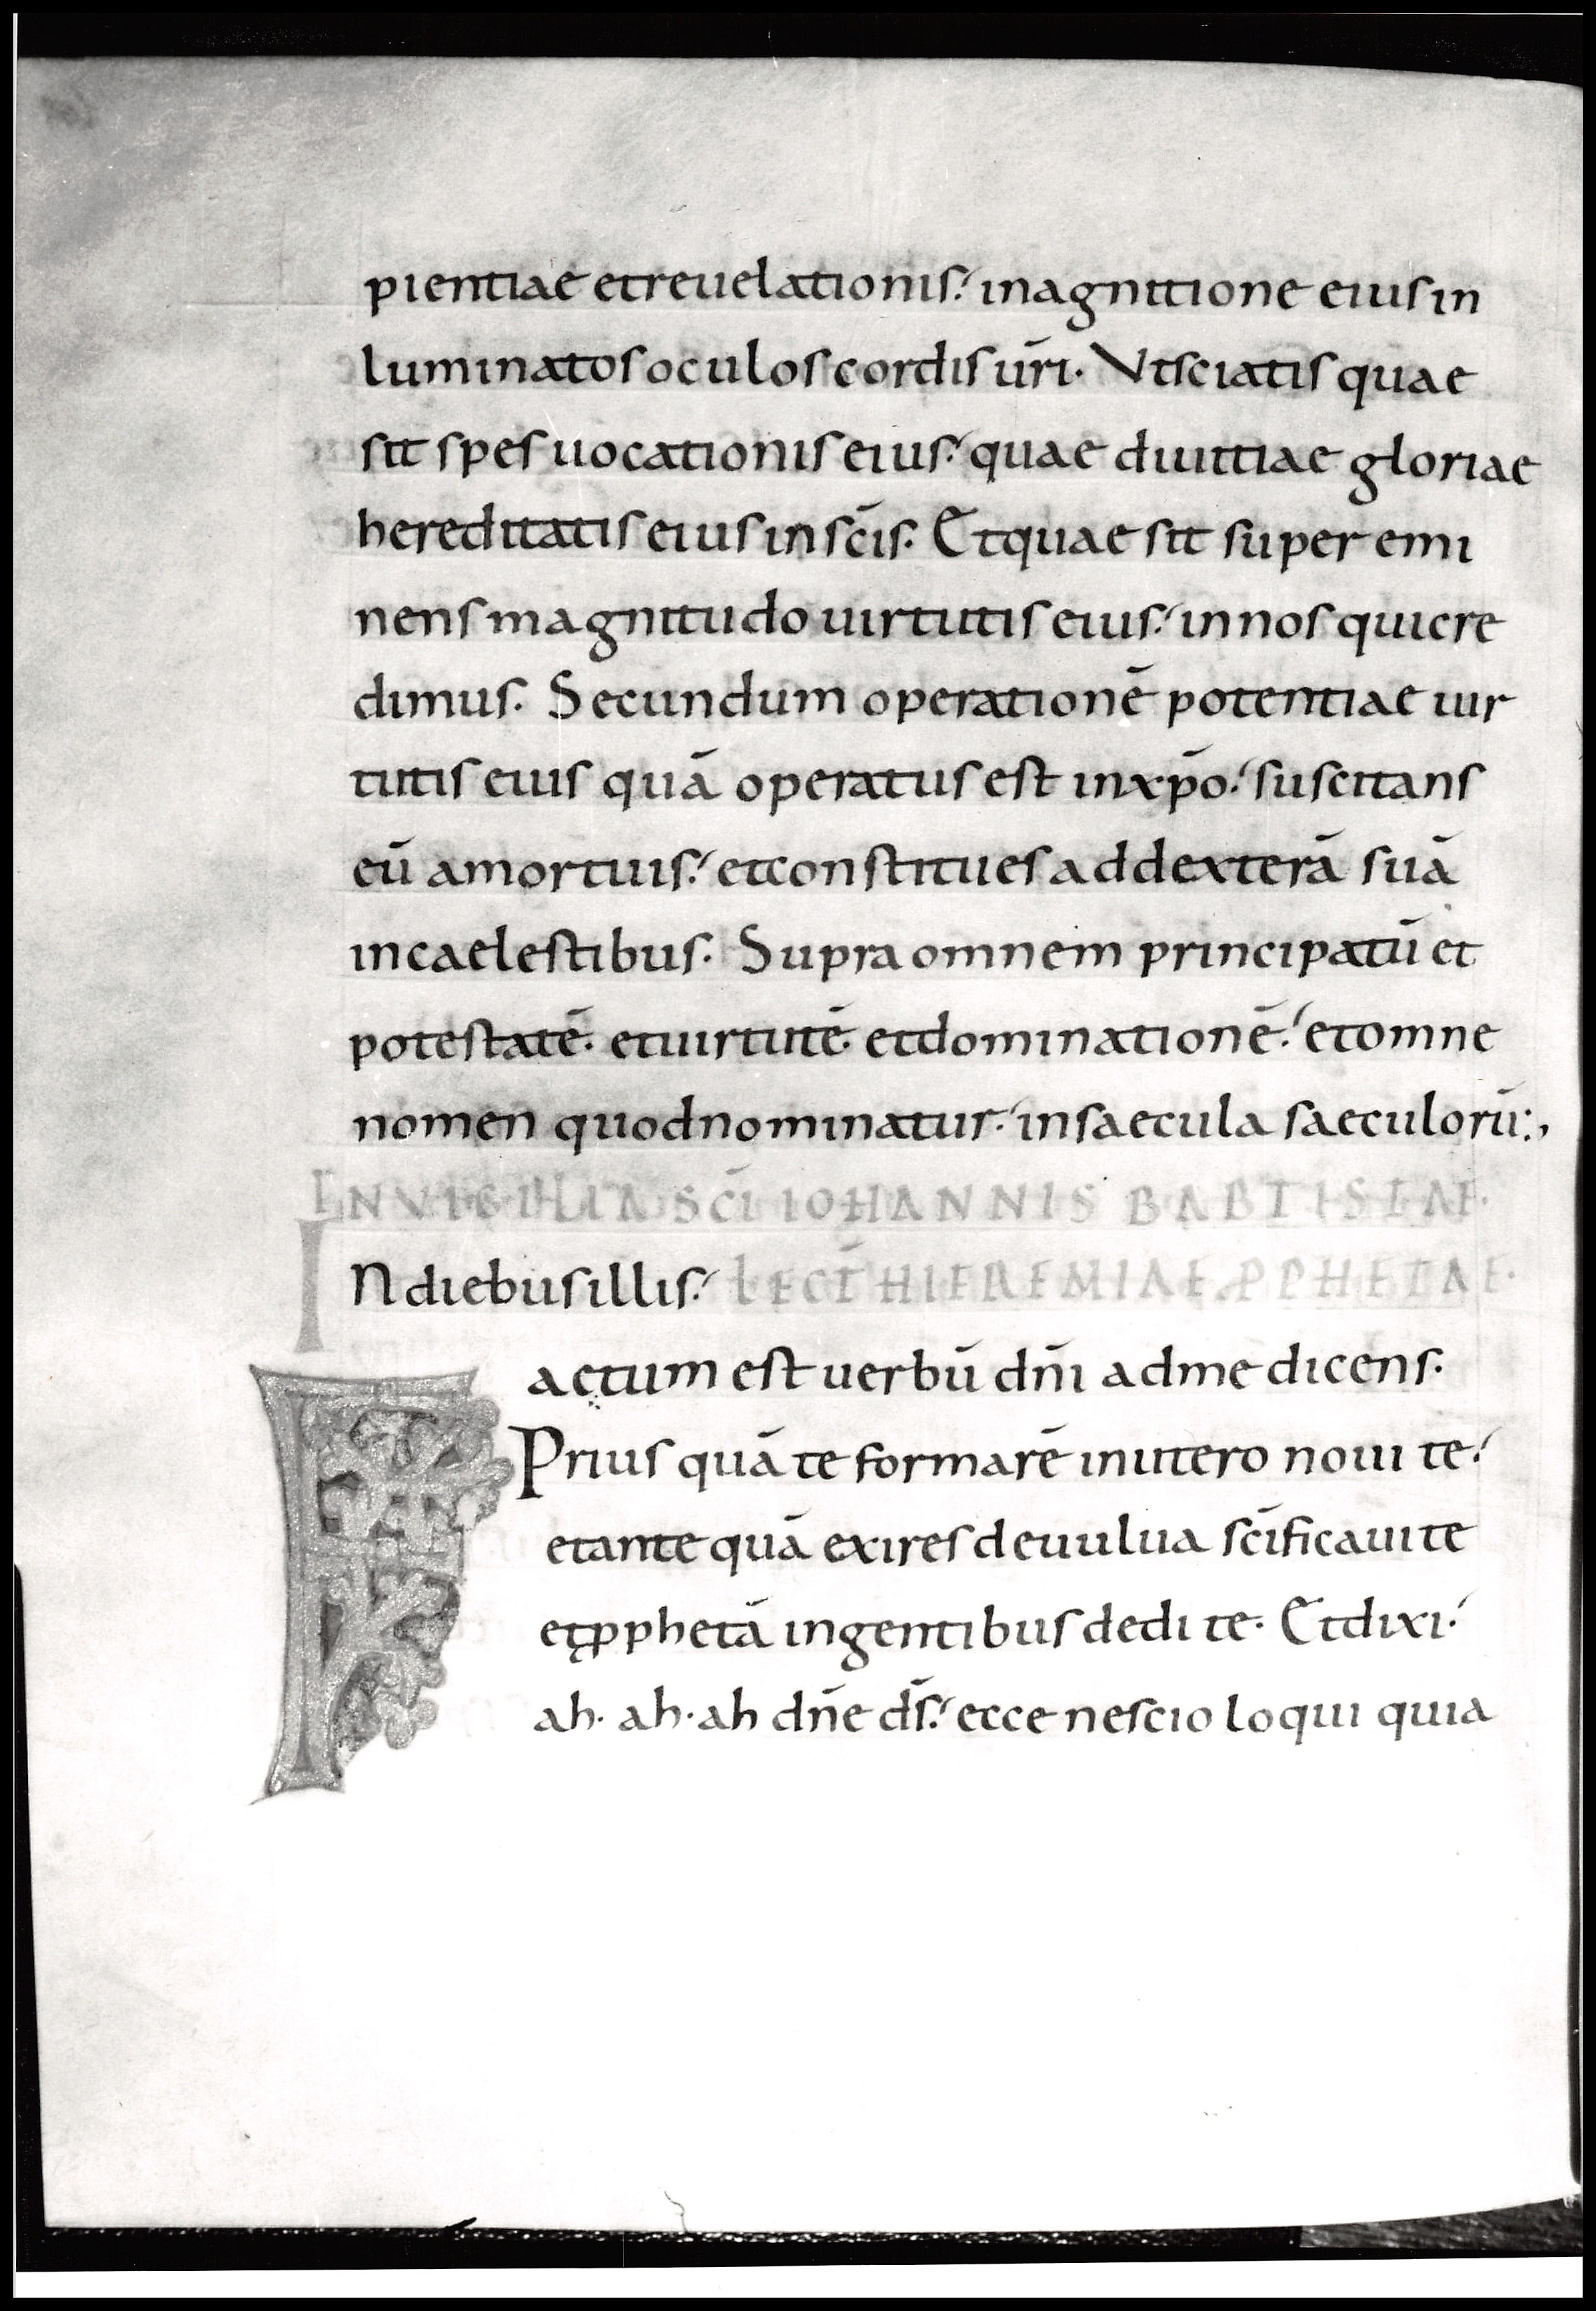 pientiae et reuelationis. in agnitione eius in
luminatos oculos cordis ūri. Vt sciatis quae
sit spes uocationis eius. quae diuitiae gloriae
hereditatis eius in sc̄is. Et quae sit super emi
nens magnitudo uirtutis eius. in nos qui cre
dimus. Secundum operationē potentiae uir
tutis eius quā operatus est in xp̄o. suscitans
eū a mortuis. et constitues ad dexterā suā
in caelestibus. Supra omnem principatū et
potestatē. et uirtutē. et dominationē. et omne
nomen quod nominatur. in saecula saeculorū:,
IN VIGILIA SC̄I IOHANNIS BABTISTAE.
IN diebus illis. LECT̄ HIEREMIAE PPHETAE.
Factum est uerbū dn̄i ad me dicens.
Prius quā te formarē in utero noui te.
et ante quā exires de uulua sc̄ificaui te
et ꝓphetā in gentibus dedi te. Et dixi.
ah. ah. ah dn̄e ds̄. ecce nescio loqui quia